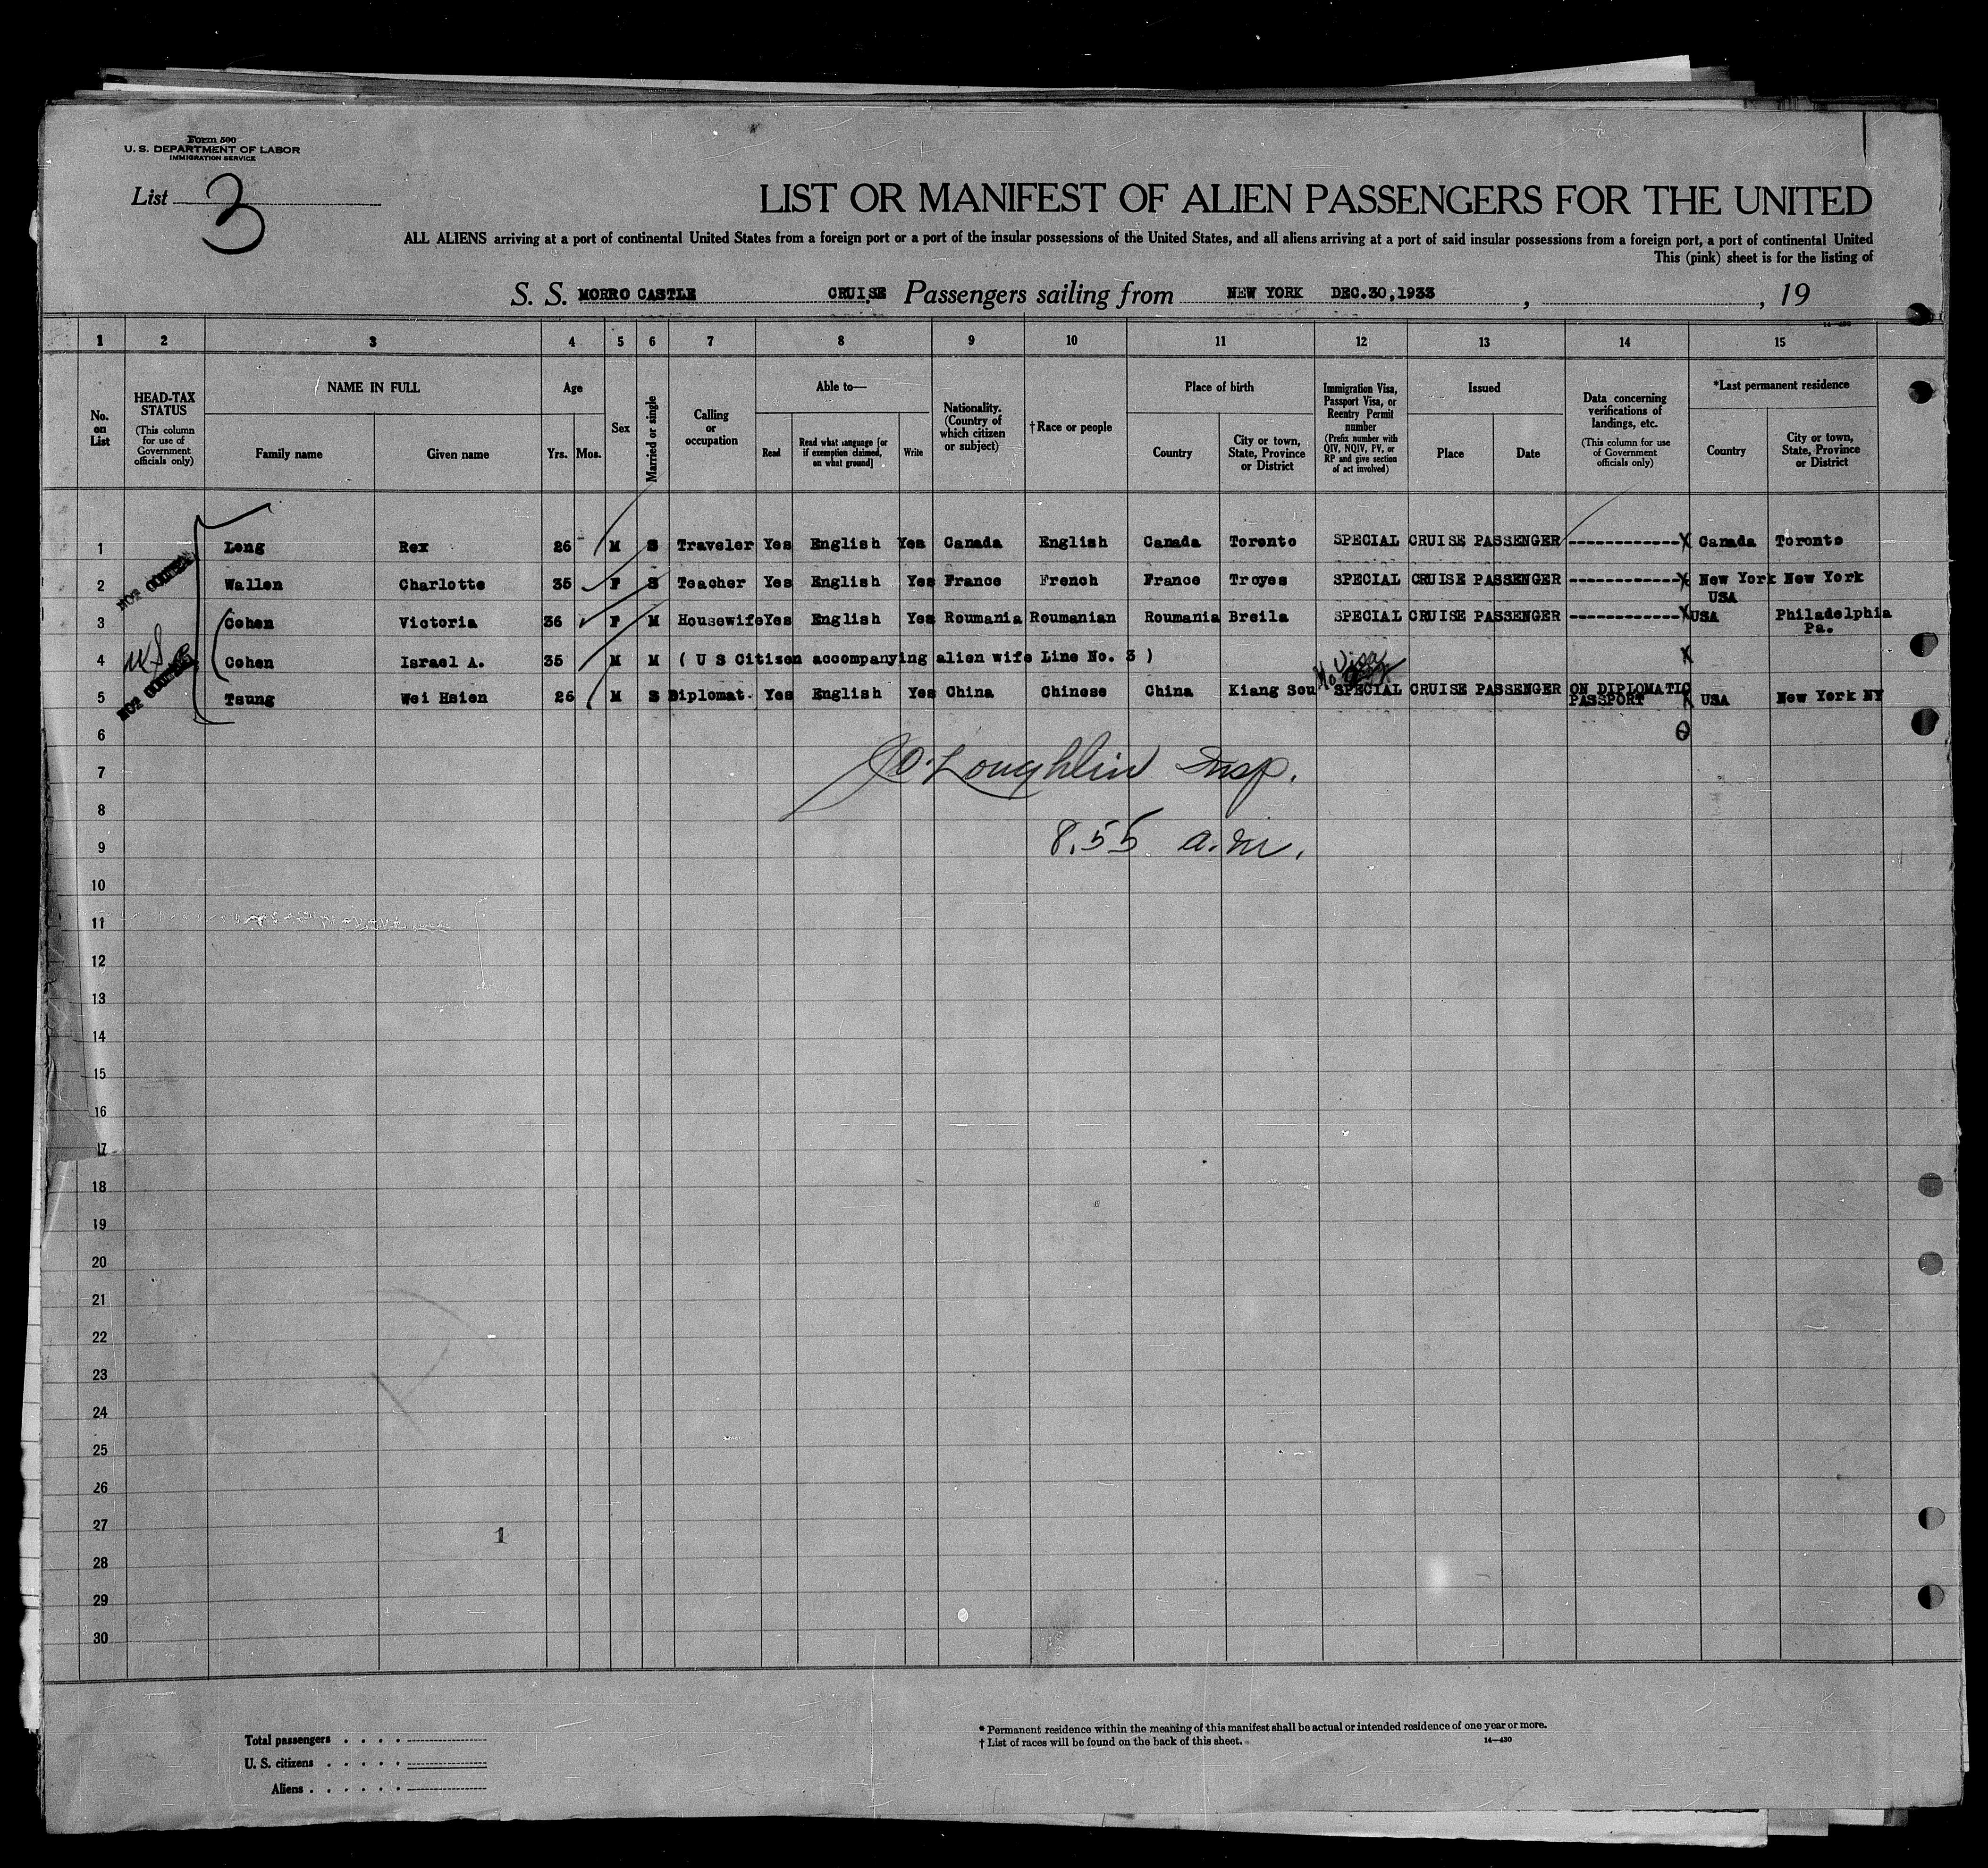 Form 500
U. S. DEPARTMENT OF LABOR
IMMIGRATION SERVICE
List 3
LIST OR MANIFEST OF ALIEN PASSENGERS FOR THE UNITED
ALL ALIENS arriving at a port of continental United States from a foreign port or a port of the insular possessions of the United States, and all aliens arriving at a port of said insular possessions from a foreign port, a port of continental United
This (pink) sheet is for the listing of
S. S. MORRO CASTLE CRUISE Passengers sailing from NEW YORK DEC.30,1933 , , 19
14—430
1 2 3 4 5 6 7 8 9 10 11 12 13 14 15
No. on List
HEAD-TAX STATUS
(This column for use of Government officials only)
NAME IN FULL
Family name Given name
Age
Yrs. Mos.
Sex
Married or single
Calling or occupation
Able to—
Read
Read what language [or if exemption claimed, on what ground]
Write
Nationality. (Country of which citizen or subject)
†Race or people
Place of birth
Country
City or town, State, Province or District
Immigration Visa, Passport Visa, or Reentry Permit number
(Prefix number with QIV, NQIV, PV, or RP and give section of act involved)
Issued
Place Date
Data concerning verifications of landings, etc.
(This column for use of Government officials only)
*Last permanent residence
Country
City or town, State, Province or District
1 Long Rex 26 M S Traveler Yes English Yes Canada English Canada Toronto SPECIAL CRUISE PASSENGER ------------X Canada Toronto
2 Wallen Charlotte 35 F S Teacher Yes English Yes France French France Troyes SPECIAL CRUISE PASSENGER ------------X New York New York
USA
NOT COUNTED
3 Cohen Victoria 36 F M Housewife Yes English Yes Roumania Roumanian Roumania Breila SPECIAL CRUISE PASSENGER ------------X USA Philadelphia
Pa.
4 Cohen Israel A. 35 M M ( U S Citizen accompanying alien wife Line No. 3 ) X
No Visa
NOT COUNTED
5 Tsung Wei Hsien 26 M S Diplomat. Yes English Yes China Chinese China Kiang Sou SPECIAL CRUISE PASSENGER ON DIPLOMATIC PASSPORT X USA New York NY
6
7 J O'Loughlin Insp.
8
9 8.55 a.m.
10
11
12
13
14
15
16
17
18
19
20
21
22
23
24
25
26
27
1
28
29
30
Total passengers . . . .
U. S. citizens . . . . .
Aliens . . . . . .
* Permanent residence within the meaning of this manifest shall be actual or intended residence of one year or more.
† List of races will be found on the back of this sheet.
14—430